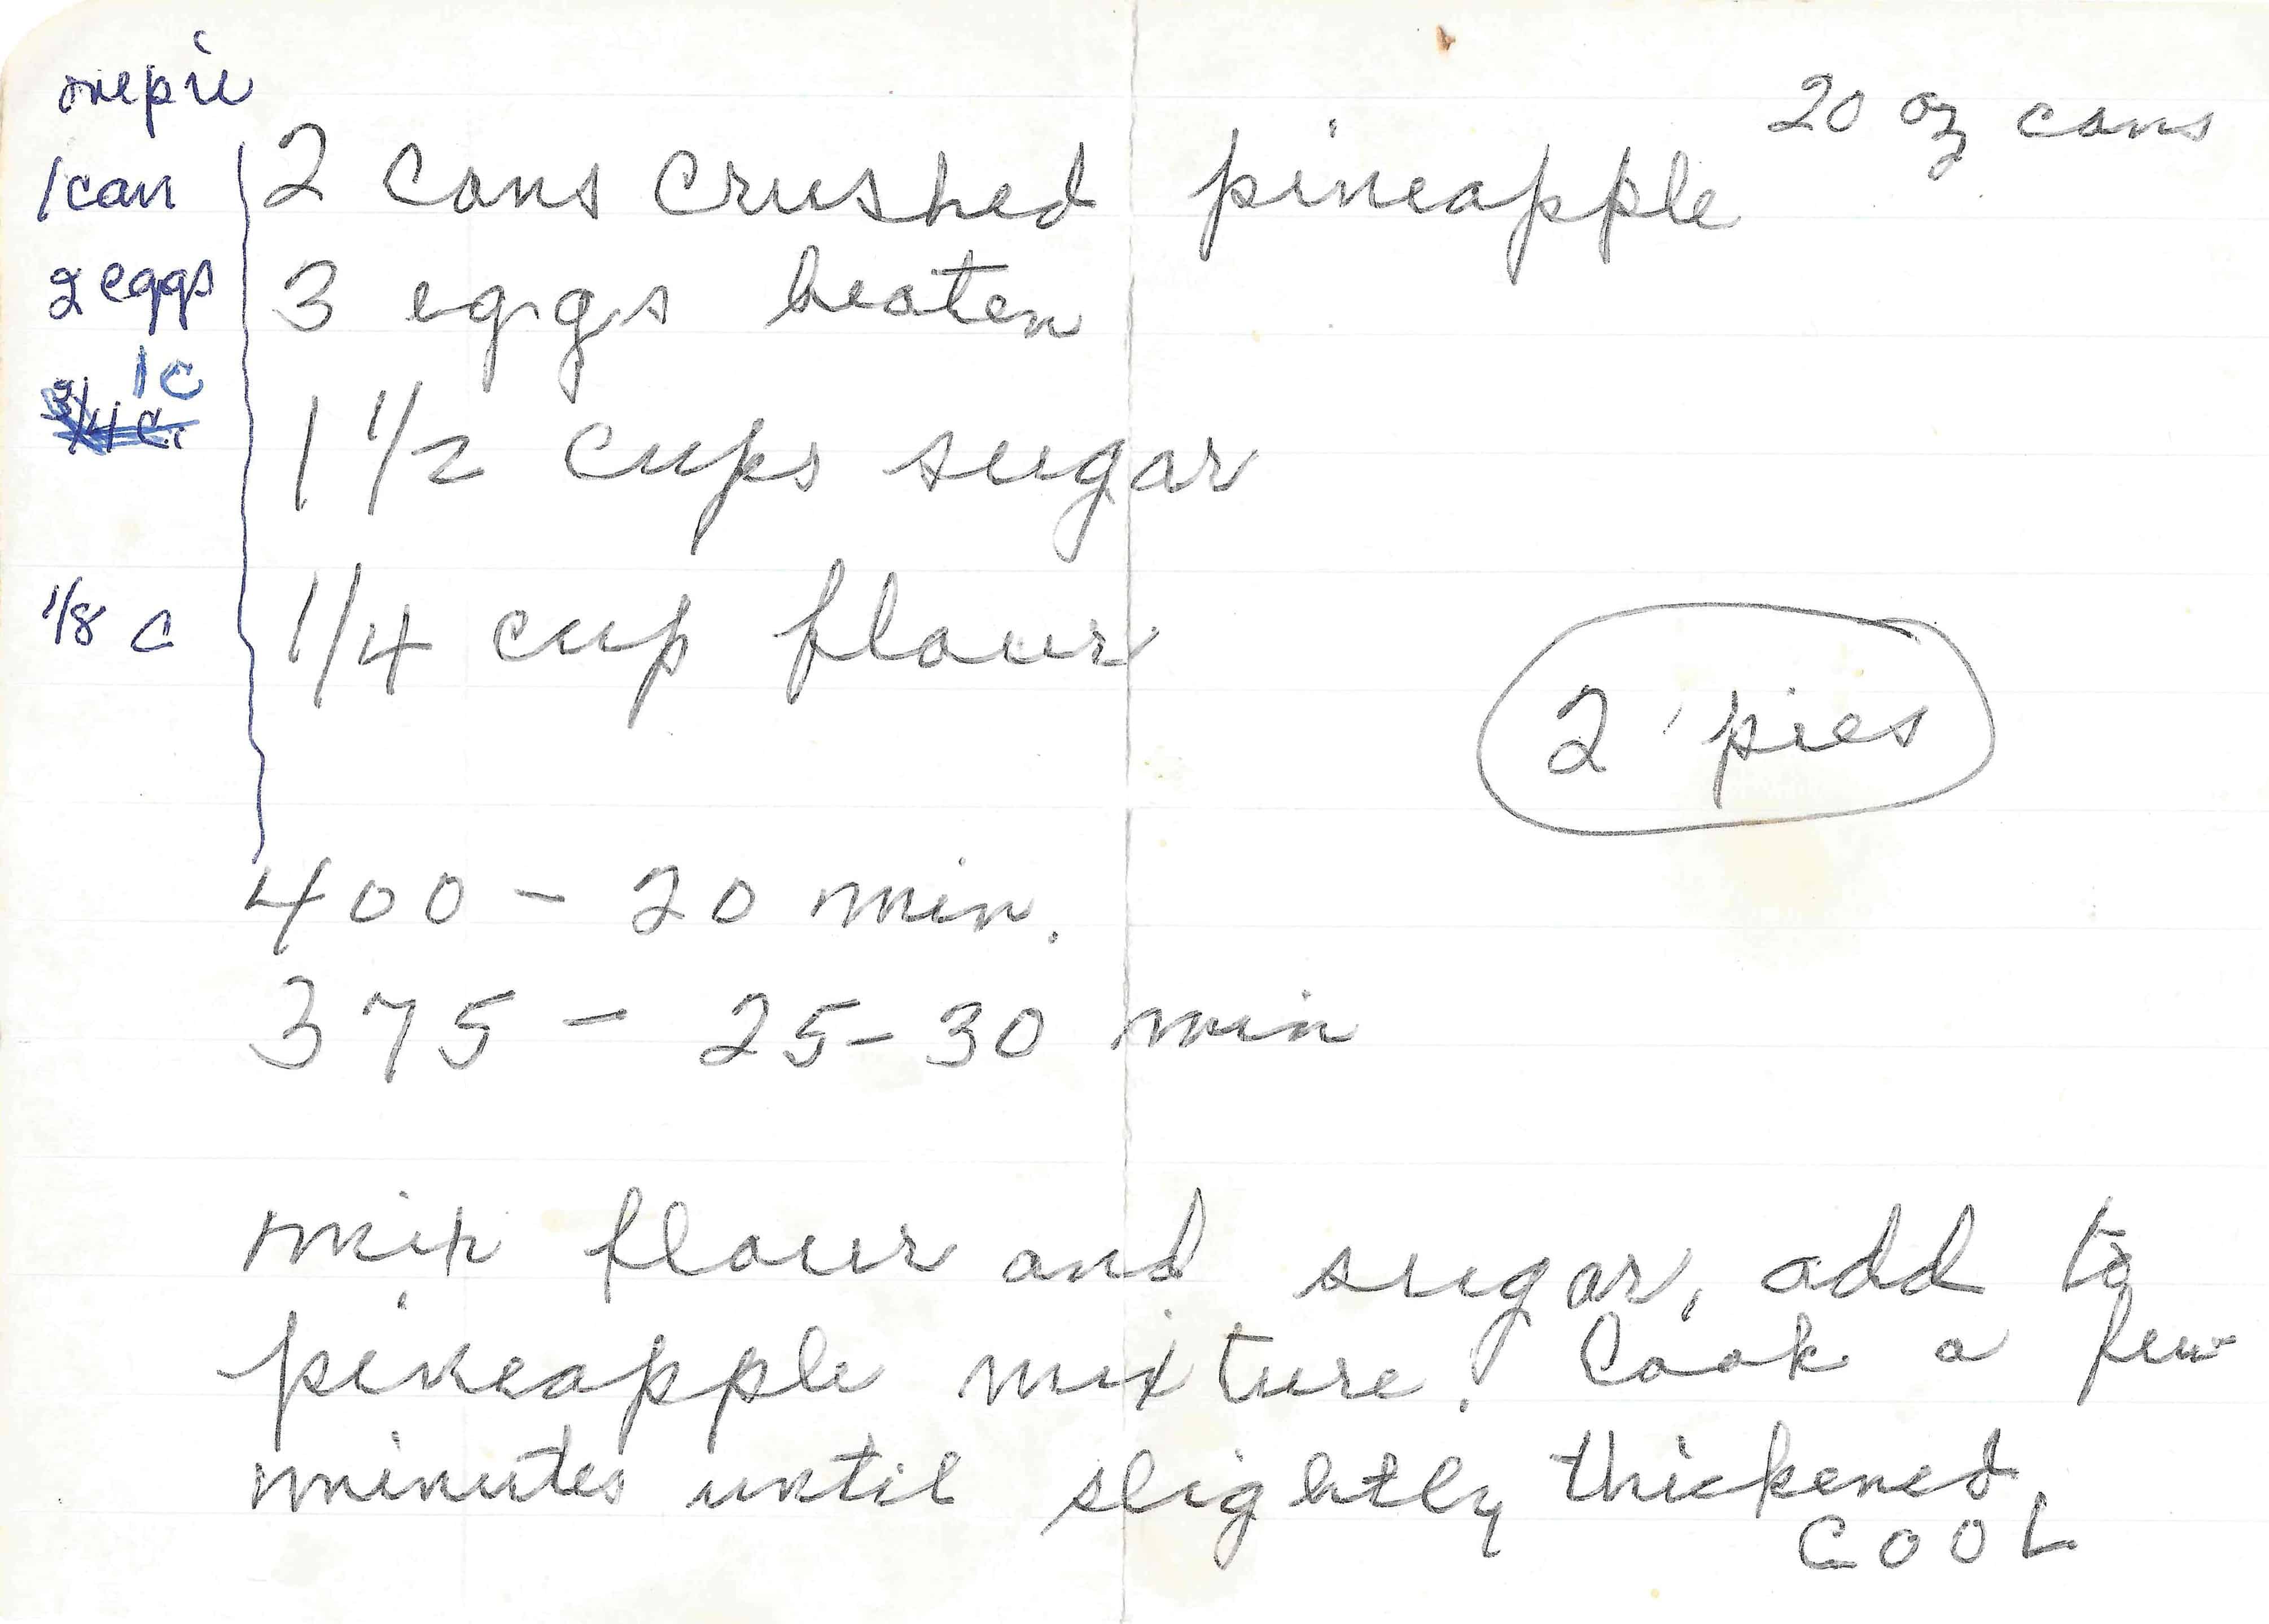 one pie
20 oz cans
1 can 2 cans crushed pineapple
2 eggs 3 eggs beaten
1 c
3/4 c.
1 1/2 cups sugar
1/8 c 1/4 cup flour
2 pies
400 - 20 min.
375 - 25-30 min
mix flour and sugar, add to
pineapple mixture. Cook a few
minutes until slightly thickened.
COOL